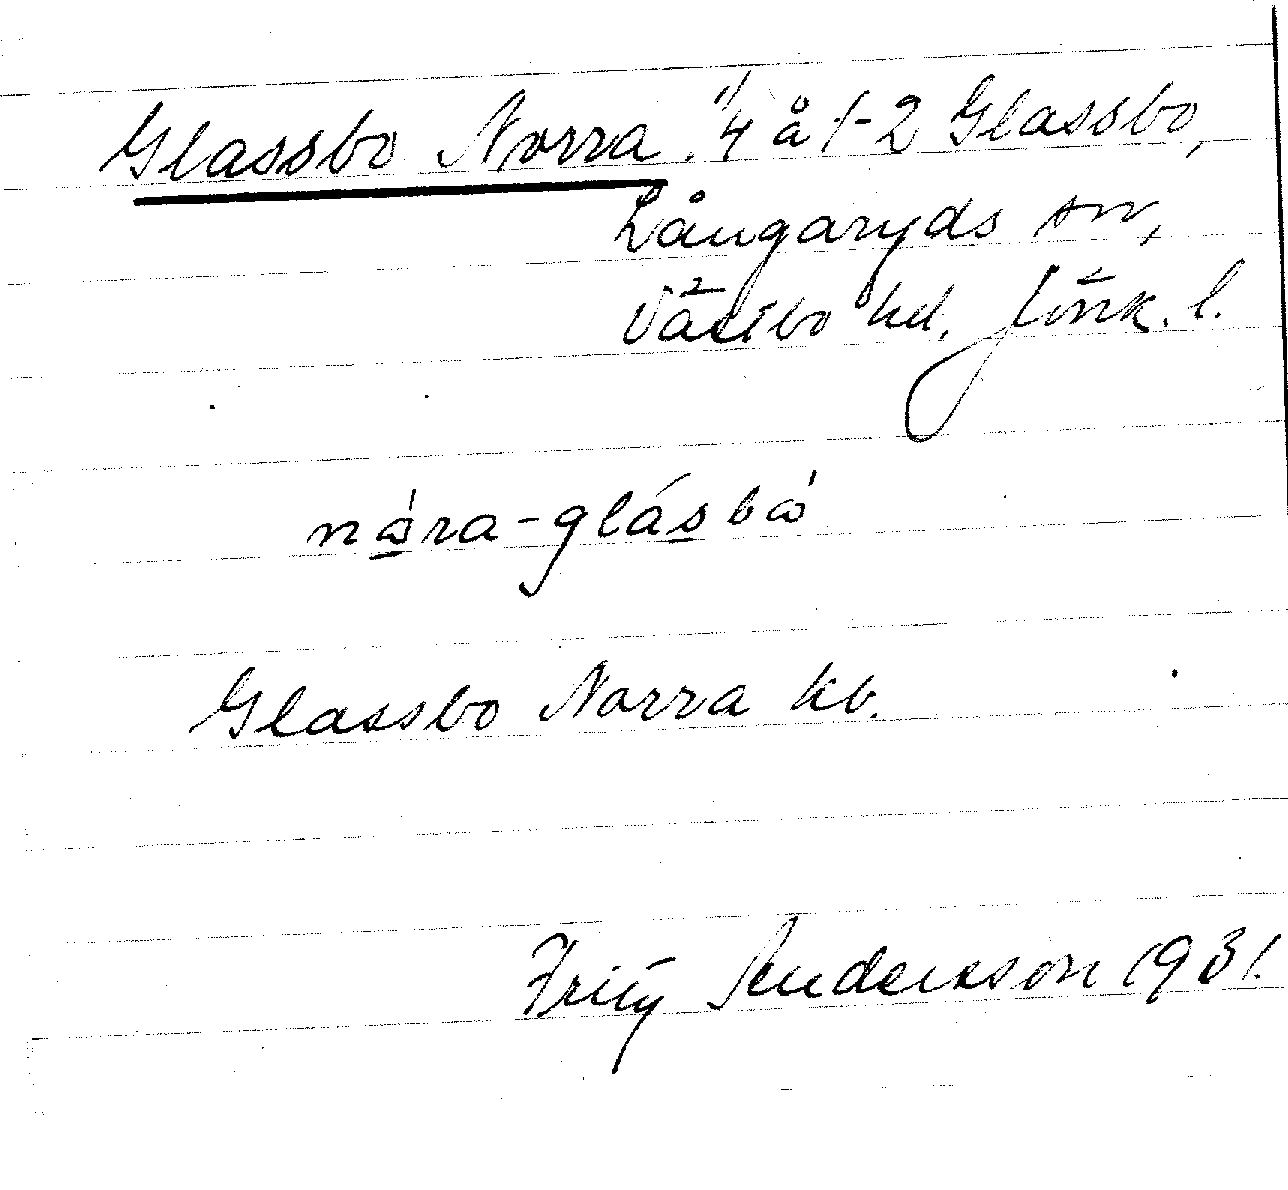 Glassbo Norra. 1/4 å 1-2 Glassbo,
Långaryds sn,
Västbo hd. Jönk. l.
nå̱ra-glás̱bå
Glassbo Norra kb.
Fritz Andersson 1931.